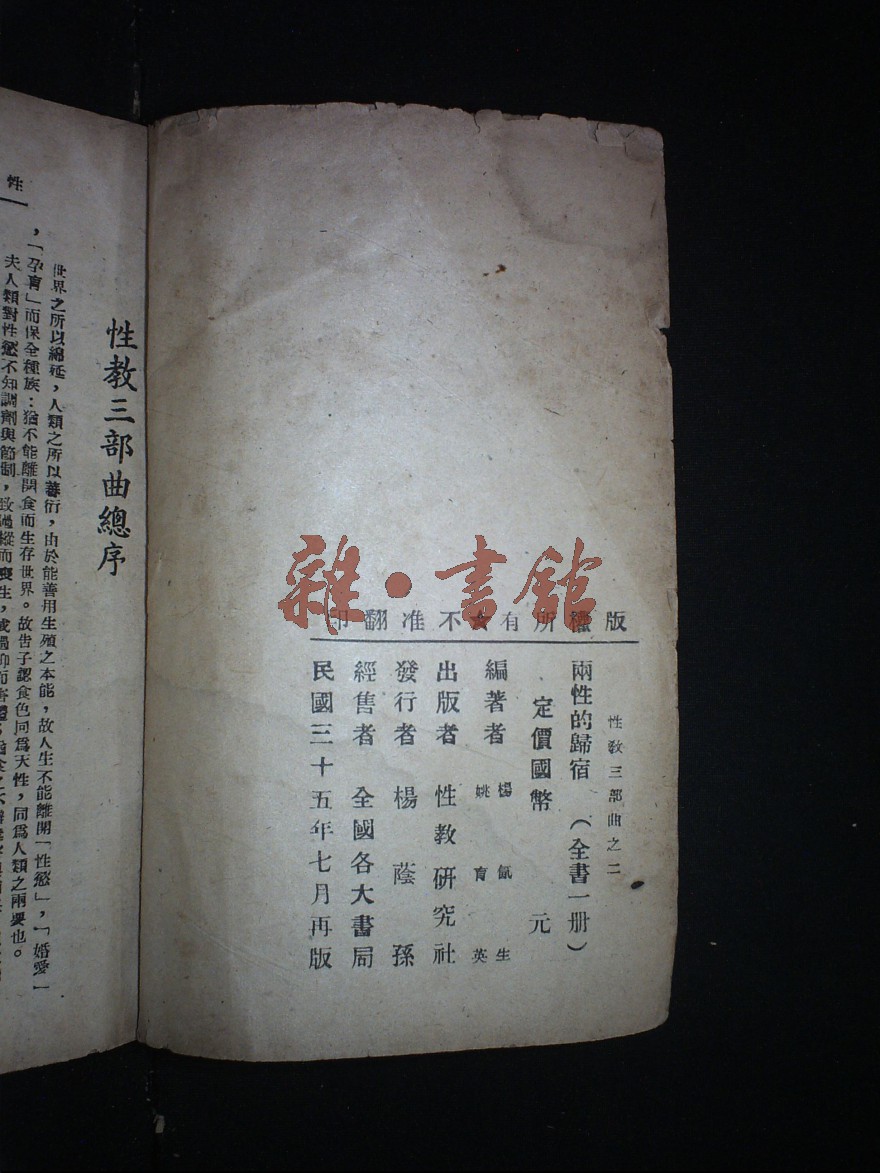 版權所有★不准翻印
性教三部曲之二
兩性的歸宿(全書一册)
定價國幣 元
編著者 楊氤生
姚育英
出版者 性教研究社
發行者 楊蔭孫
經售者 全國各大書局
民國三十五年七月再版
雜·書館
性
性教三部曲總序
世界之所以綿延,人類之所以蕃衍,由於能善用生殖之本能,故人生不能離開「性慾」,「婚愛」
,「孕育」而保全種族:猶不能離開食而生存世界。故告子認食色同爲天性,同爲人類之兩要也。
夫人類對性慾不知調劑與節制,致過縱而喪生,或過抑而